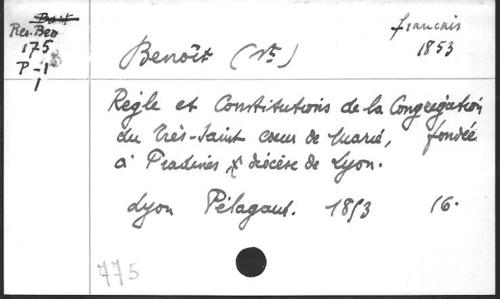 Res. Ben
175
P-1
1
français
1853
Benoît (St)
Règle et Constitutions de la Congrégation
du Très-Saint cœur de Marie, fondée
à Pradines, diocèse de Lyon.
Lyon Pélagaut. 1853 16.
775